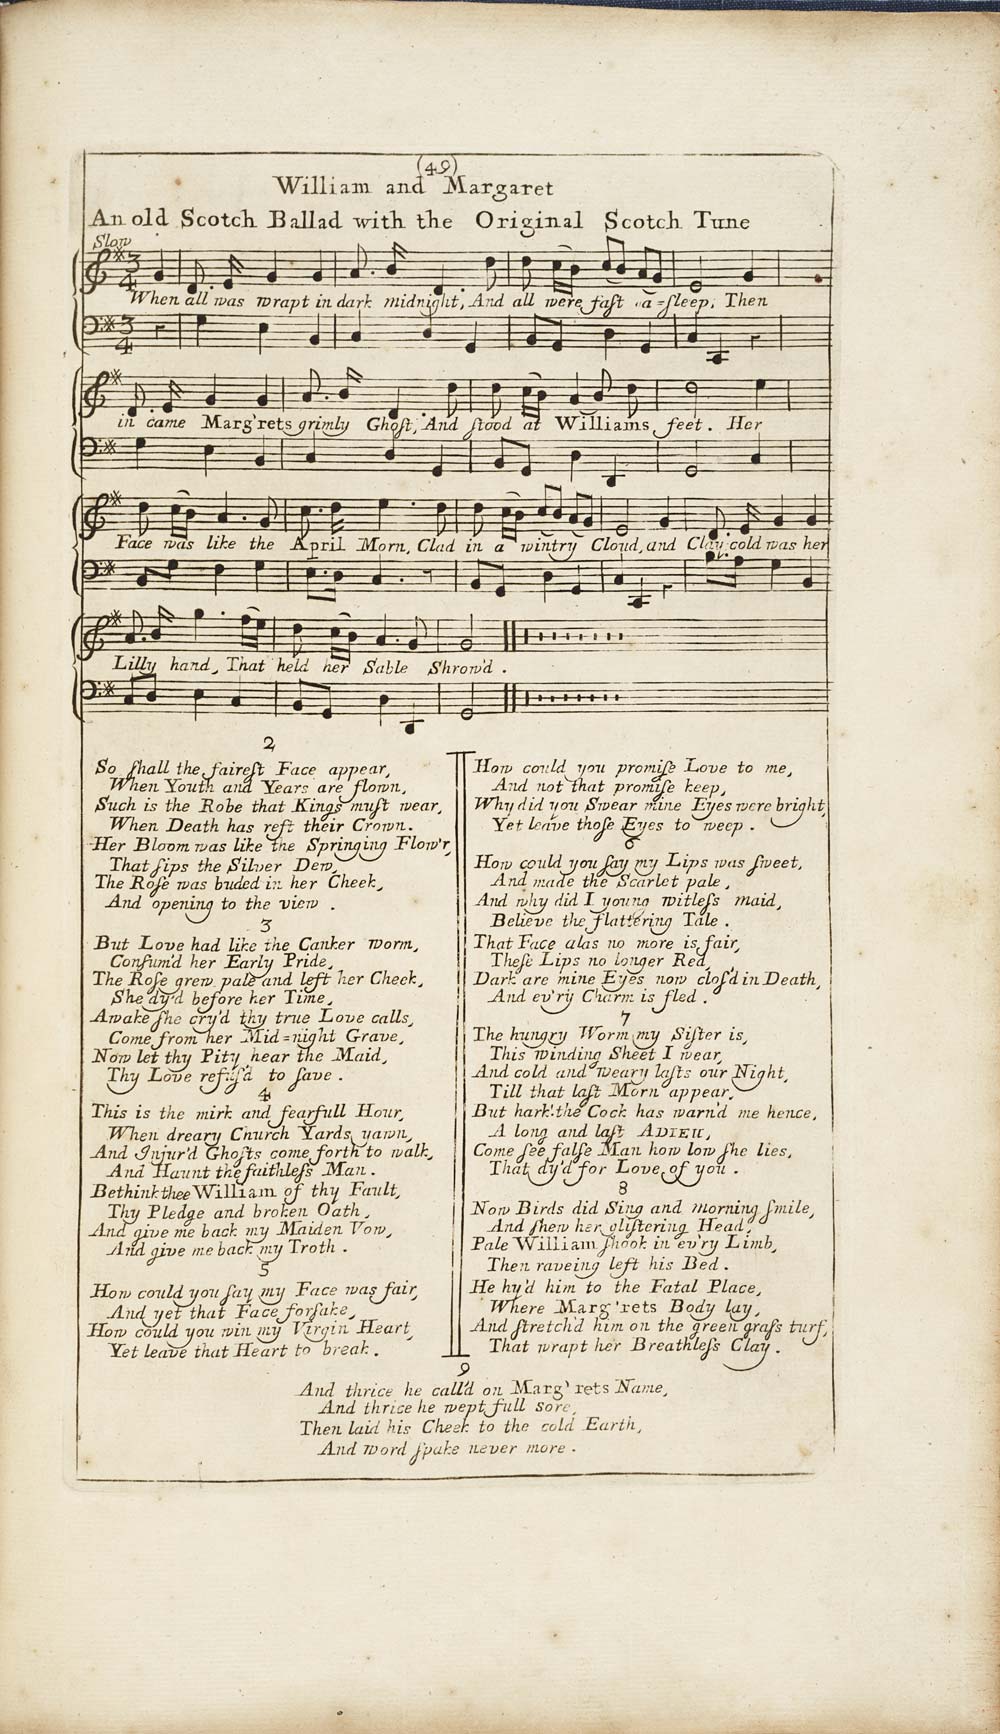 (49)
William and Margaret
An old Scotch Ballad with the Original Scotch Tune
Slow
When all was wrapt in dark midnight, And all were faſt a=ſleep, Then
in came Marg'rets grimly Ghoſt, And ſtood at Williams feet. Her
Face was like the April Morn, Clad in a wintry Cloud, and Clay cold was her
Lilly hand, That held her Sable Shrow'd.
2
So ſhall the faireſt Face appear,
When Youth and Years are flown,
Such is the Robe that Kings muſt wear,
When Death has reft their Crown.
Her Bloom was like the Springing Flow'r,
That ſips the Silver Dew,
The Roſe was buded in her Cheek,
And opening to the view.
3
But Love had like the Canker worm,
Conſum'd her Early Pride,
The Roſe grew pale and left her Cheek,
She dy'd before her Time,
Awake ſhe cry'd thy true Love calls,
Come from her Mid=night Grave,
Now let thy Pity hear the Maid,
Thy Love refuſ'd to ſave.
4
This is the mirk and fearfull Hour,
When dreary Church Yards yawn,
And Injur'd Ghoſts come forth to walk,
And Haunt the faithleſs Man.
Bethink thee William of thy Fault,
Thy Pledge and broken Oath,
And give me back my Maiden Vow,
And give me back my Troth.
5
How could you ſay my Face was fair,
And yet that Face forſake,
How could you win my Virgin Heart,
Yet leave that Heart to break.
How could you promiſe Love to me,
And not that promiſe keep,
Why did you Swear mine Eyes were bright,
Yet leave thoſe Eyes to weep.
6
How could you ſay my Lips was ſweet,
And made the Scarlet pale,
And why did I young witleſs maid,
Believe the flattering Tale.
That Face alas no more is fair,
Theſe Lips no longer Red,
Dark are mine Eyes now cloſ'd in Death,
And ev'ry Charm is fled.
7
The hungry Worm my Siſter is,
This winding Sheet I wear,
And cold and weary laſts our Night,
Till that laſt Morn appear,
But hark! the Cock has warn'd me hence,
A long and laſt ADIEU,
Come ſee falſe Man how low ſhe lies,
That dy'd for Love of you.
8
Now Birds did Sing and morning ſmile,
And ſhew her gliſtering Head,
Pale William ſhook in ev'ry Limb,
Then raveing left his Bed.
He hy'd him to the Fatal Place,
Where Marg'rets Body lay,
And ſtretch'd him on the green graſs turf,
That wrapt her Breathleſs Clay.
9
And thrice he call'd on Marg'rets Name,
And thrice he wept full sore,
Then laid his Cheek to the cold Earth,
And word ſpake never more.